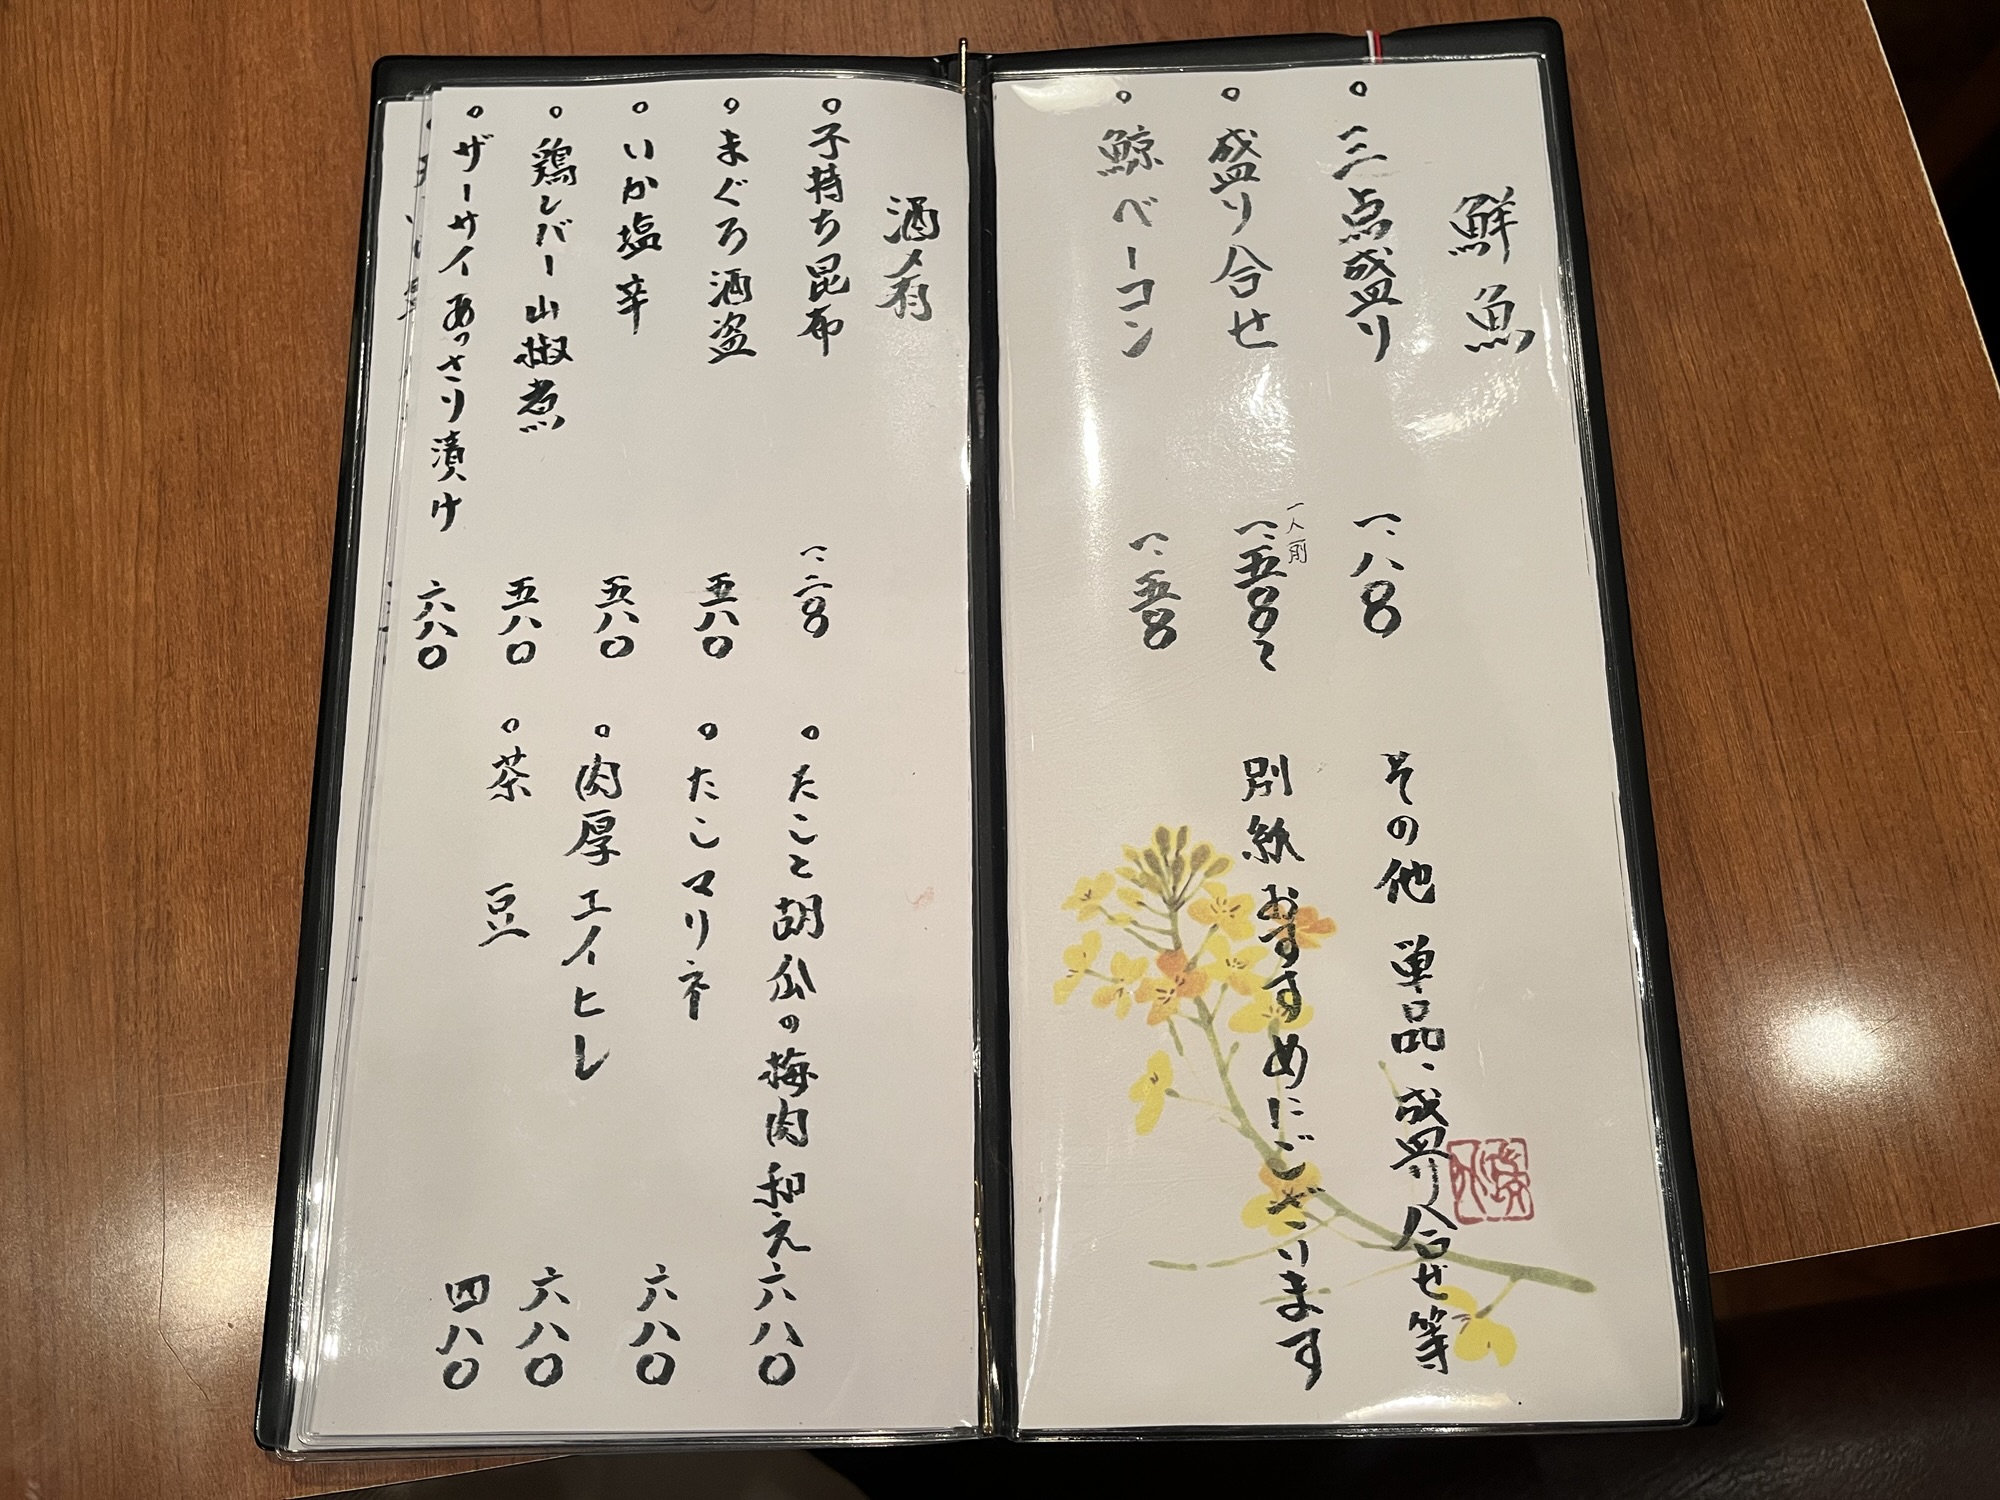 鮮魚
。三点盛り 一、八〇〇
。盛り合せ 一人前 一、五〇〇〜
。鯨ベーコン 一、五〇〇
その他 単品、盛り合せ等
別紙おすすめにございます
酒肴
。子持ち昆布 一、二〇〇
。まぐろ酒盗 五八〇
。いか塩辛 五八〇
。鶏レバー山椒煮 五八〇
。ザーサイあっさり漬け 六八〇
。たこと胡瓜の梅肉和え 六八〇
。たこマリネ 六八〇
。肉厚エイヒレ 六八〇
。茶豆 四八〇